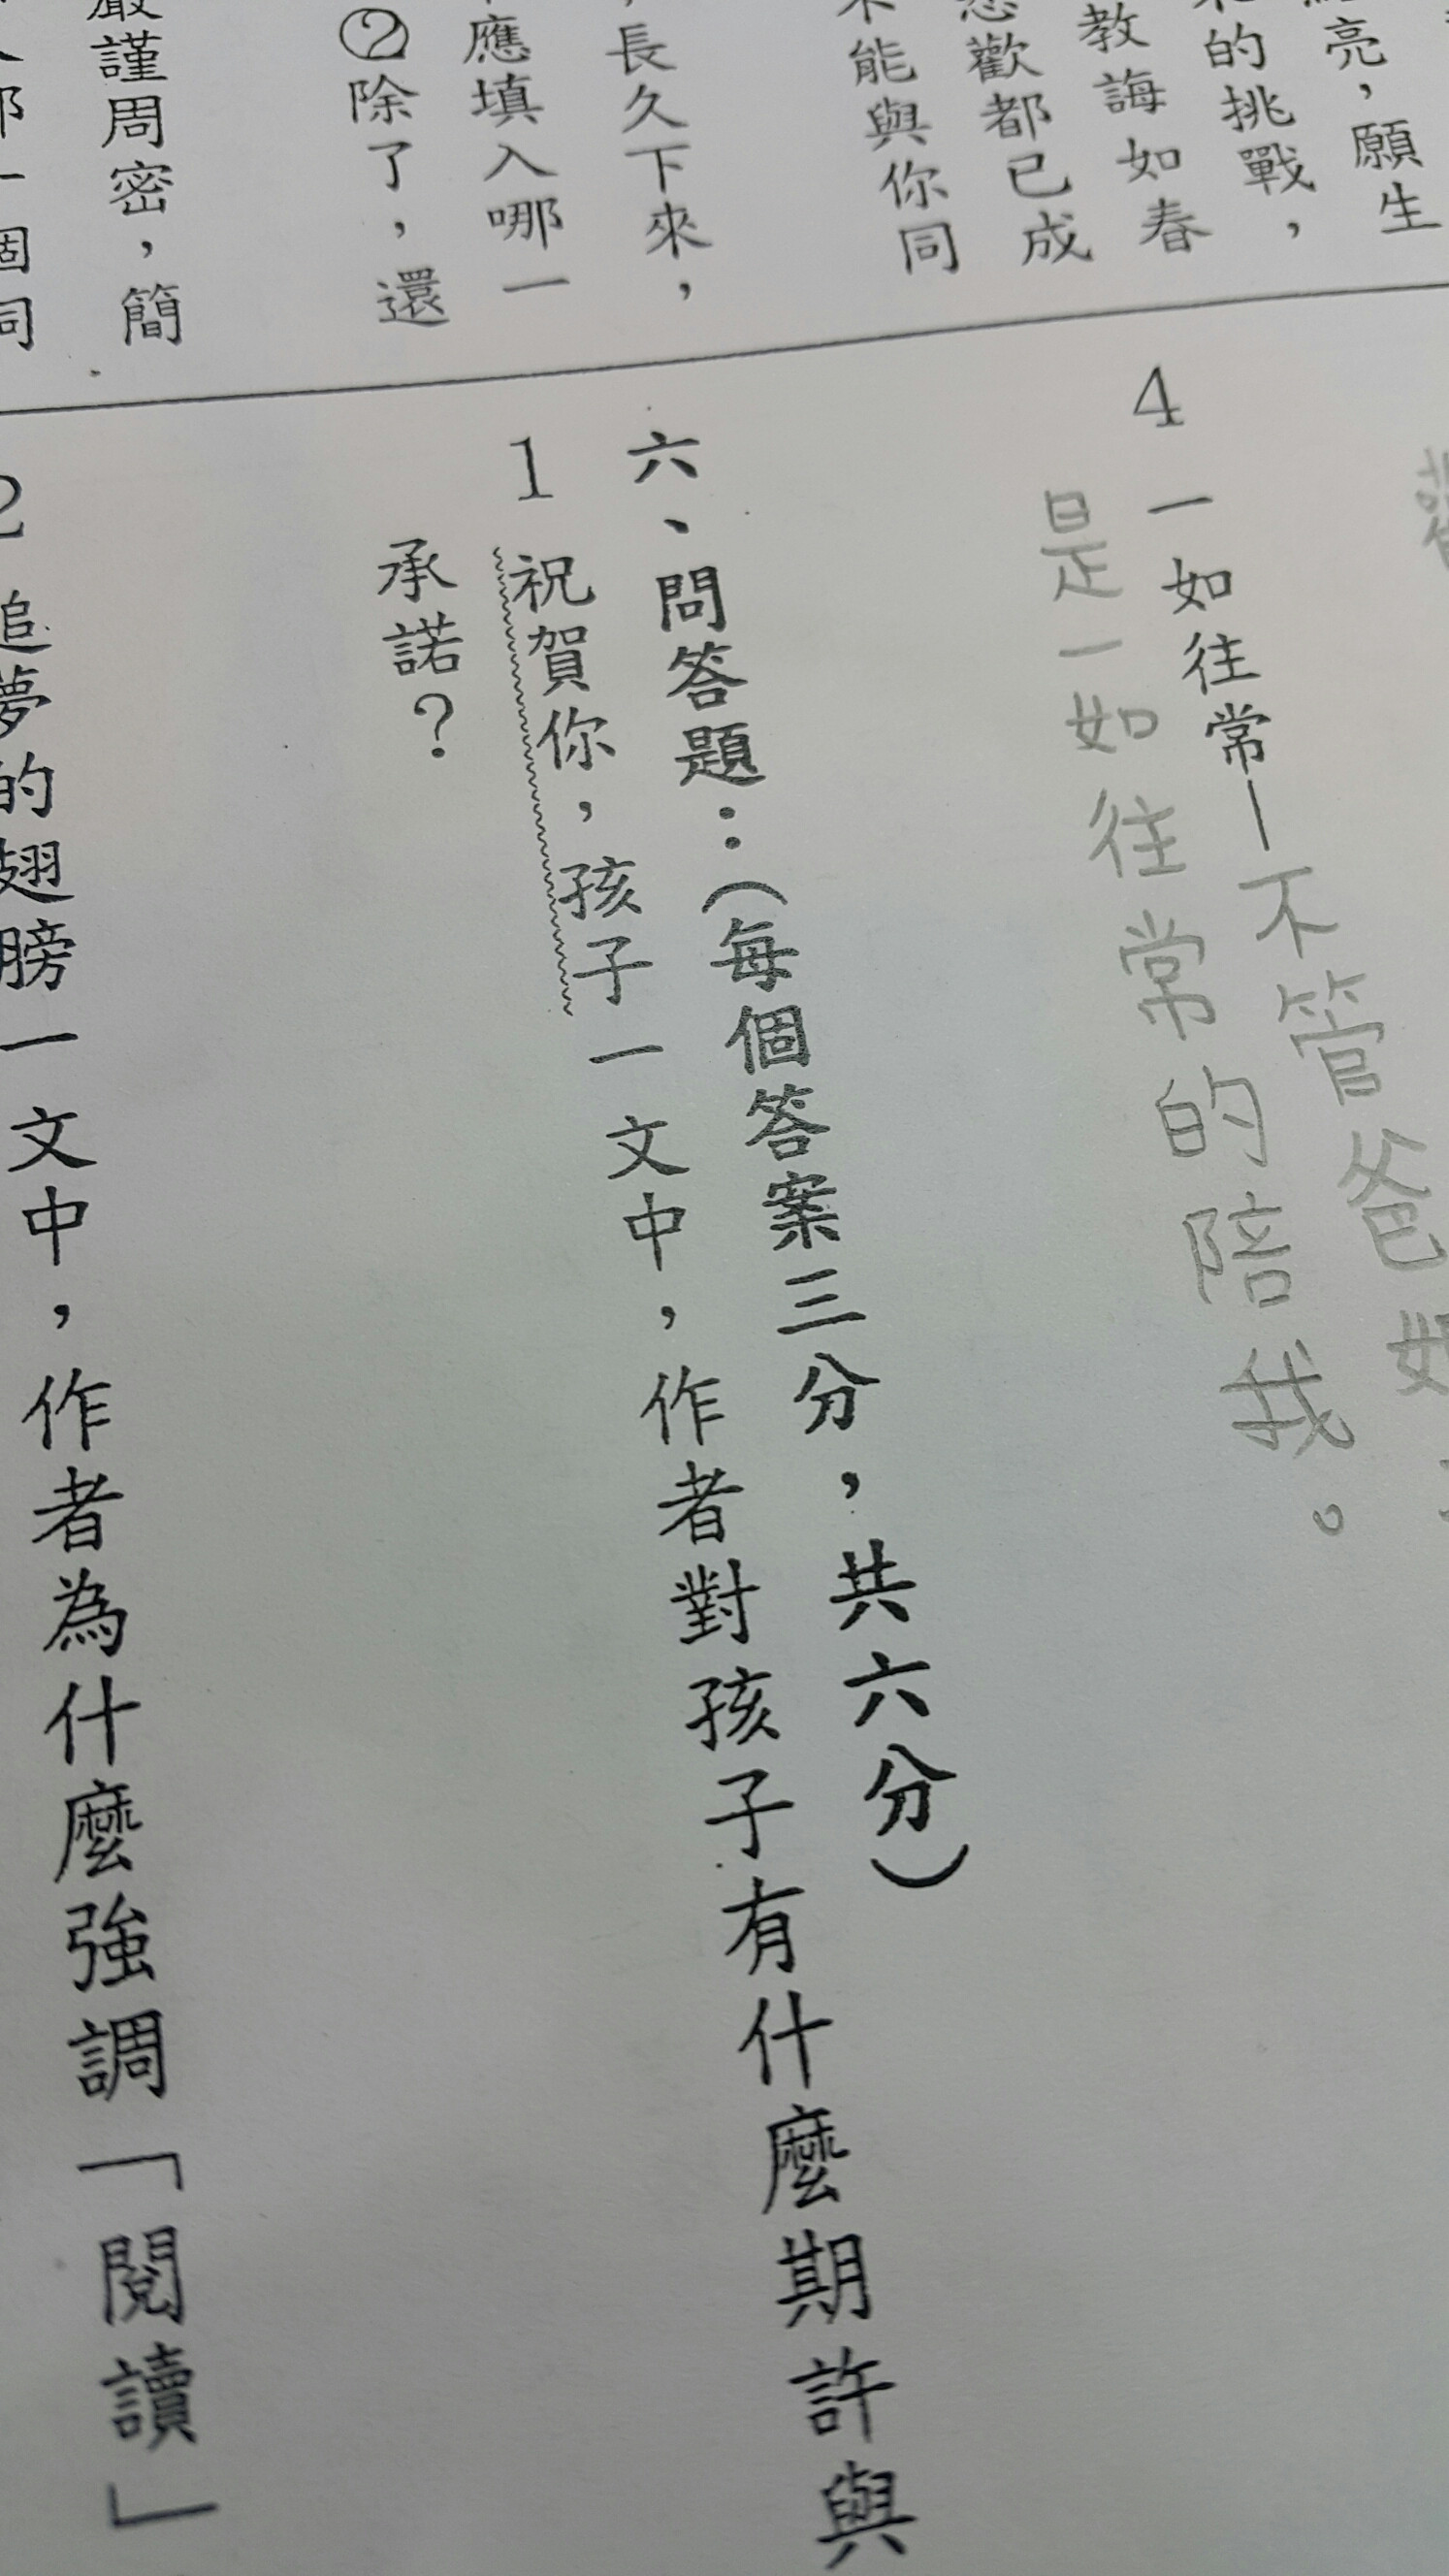 亮，願生
的挑戰，
教誨如春
歡都已成
能與你同
長久下來，
應填入哪一
②除了，還
謹周密，簡
一個詞
4 一如往常—不管爸
是一如往常的陪我。
六、問答題：（每個答案三分，共六分）
1 祝賀你，孩子一文中，作者對孩子有什麼期許與
承諾？
2 追夢的翅膀一文中，作者為什麼強調「閱讀」